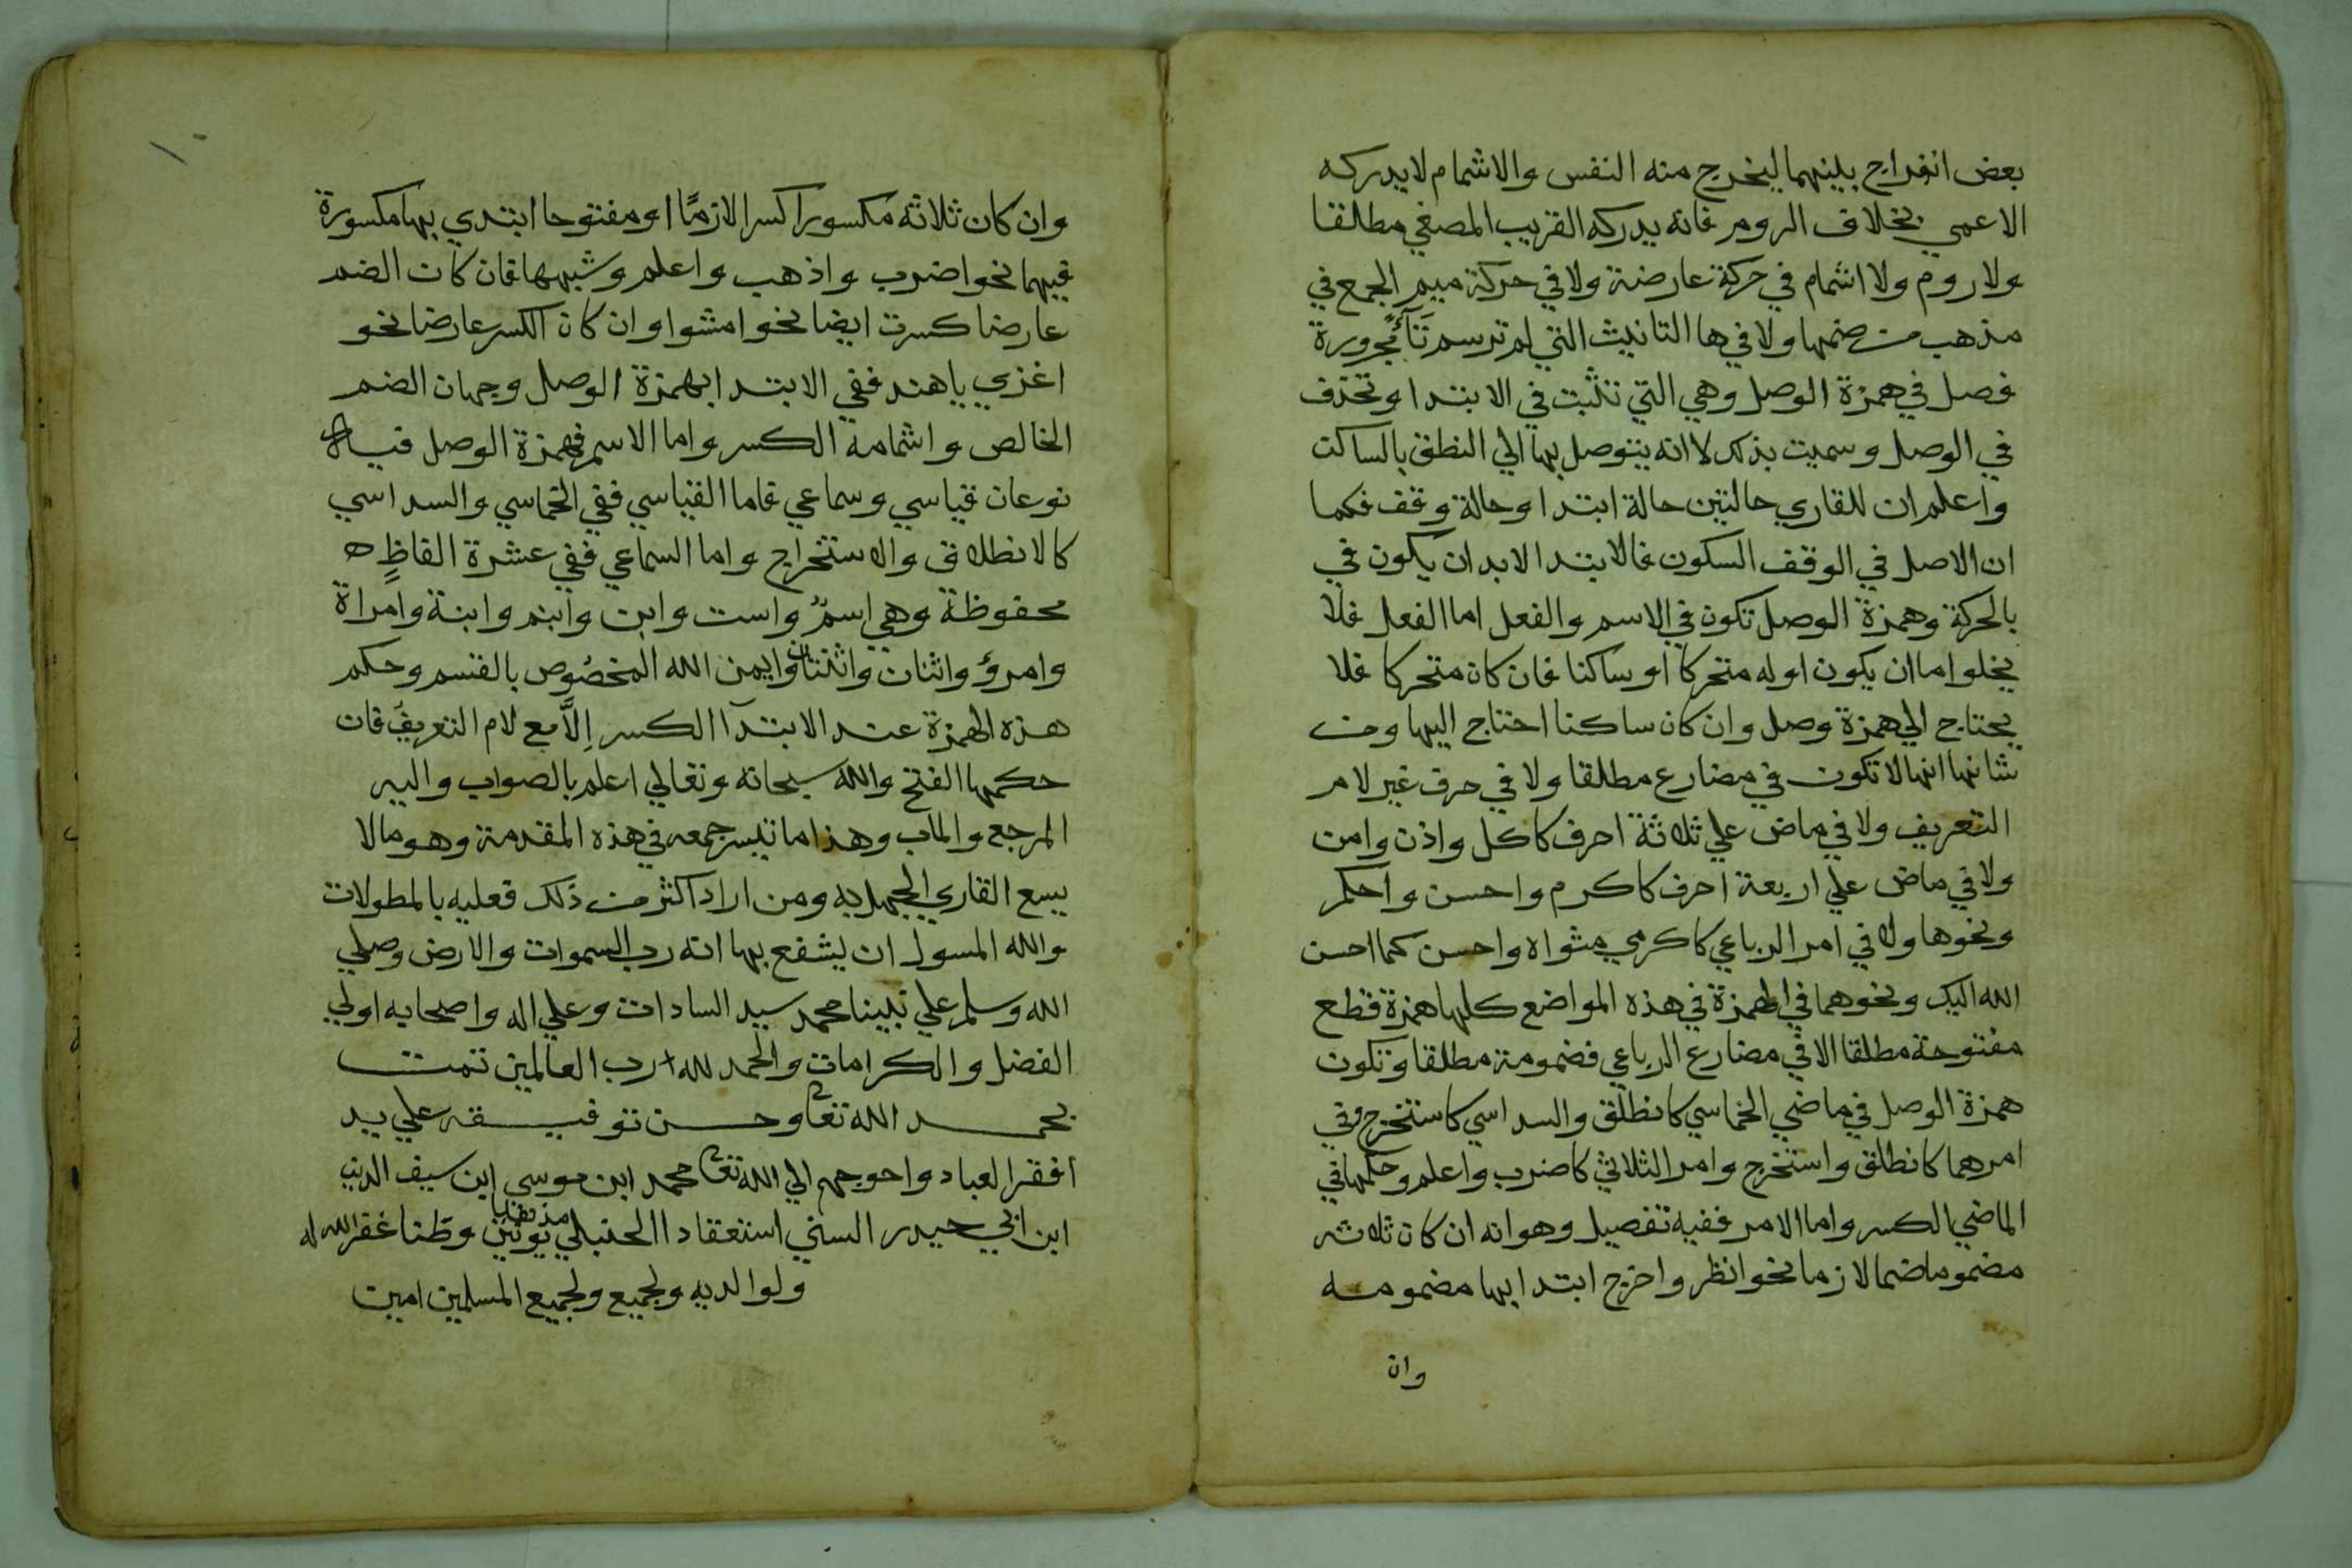 بعض انفراج بينهما ليخرج منه النفس والاشمام لا يدركه
الاعمي بخلاف الروم فانه يدركه القريب المصغي مطلقا
ولا روم ولا اشمام في حركة عارضة ولا في حركة ميم الجمع في
مذهب من ضمها ولا في ها التانيث التي لم ترسم تآءً مجرورة
فصل في همزة الوصل وهي التي تثبت في الابتدا وتحذف
في الوصل وسميت بذلك لاانه يتوصل بها الي النطق بالساكن
واعلم ان للقاري حالتين حالة ابتدا وحالة وقف فكما
ان الاصل في الوقف السكون فالابتدا لابد ان يكون في
بالحركة وهمزة الوصل تكون في الاسم والفعل اما الفعل فلا
يخلوا اما ان يكون اوله متحركا او ساكنا فان كان متحركا فلا
يحتاج الي همزة وصل وان كان ساكنا احتاج اليها ومن
شانها انها لا تكون في مضارع مطلقا ولا في حرف غير لام
التعريف ولا في ماض علي ثلاثة احرف كاكل واذن وامن
ولا في ماض علي اربعة احرف كاكرم واحسن واحكم
ونحوها ولا في امر الرباعي كاكرمي مثواه واحسن كما احسن
الله اليك ونحوهما في الهمزة في هذه المواضع كلها همزة قطع
مفتوحة مطلقا الا في مضارع الرباعي فضمومة مطلقا وتكون
همزة الوصل في ماضي الخماسي كانطلق والسداسي كاستخرج وفي
امرهما كانطلق واستخرج وامر الثلاثي كاضرب واعلم وحكمها في
الماضي الكسر واما الامر ففيه تفصيل وهو انه ان كان ثلاثه
مضموما ضما لازما نحو انظر واخرج ابتدا بها مضمومه
وان
وان كان ثلاثه مكسورا كسرا لازمًا او مفتوحا ابتدي بها مكسورة
فيهما نحو اضرب واذهب واعلم وشبهها فان كان الضم
عارضا كسرت ايضا نحو امشوا وان كان الكسر عارضا نحو
اغزي ياهند ففي الابتدا بهمزة الوصل وجهان الضم
الخالص واشمامه الكسر واما الاسم فهمزة الوصل فيه
نوعان قياسي وسماعي فاما القياسي ففي الخماسي والسداسي
كالانطلاق والاستخراج واما السماعي ففي عشرة الفاظٍ
محفوظة وهي اسمٌ واست وابن وابنم وابنة وامراة
وامرؤ واثنان واثنتان وايمن الله المخصُوص بالقسم وحكم
هذه الهمزة عند الابتدآ الكسر اِلاَّ مع لام التعريف فان
حكمها الفتح والله سبحانه وتعالي اعلم بالصواب واليه
المرجع والماب وهذا ما تيسر جمعه في هذه المقدمة وهو مالا
يسع القاري الجهل به ومن اراد اكثر من ذلك فعليه بالمطولات
والله المسول ان يشفع بها انه رب السموات والارض وصلي
الله وسلم علي نبينا محمد سيد السادات وعلي اله واصحابه اولي
الفضل والكرامات والحمد لله رب العالمين تمت
بحمد الله تعا وحسن توفيقه علي يد
افقر العباد واحوجهم الي الله تعا محمد ابن موسي ابن سيف الدين
ابن ابي حيدر السني استعقادا الحنبلي مذهبا وطنا غفر الله له
ولوالديه ولجميع ولجميع المسلمين امين